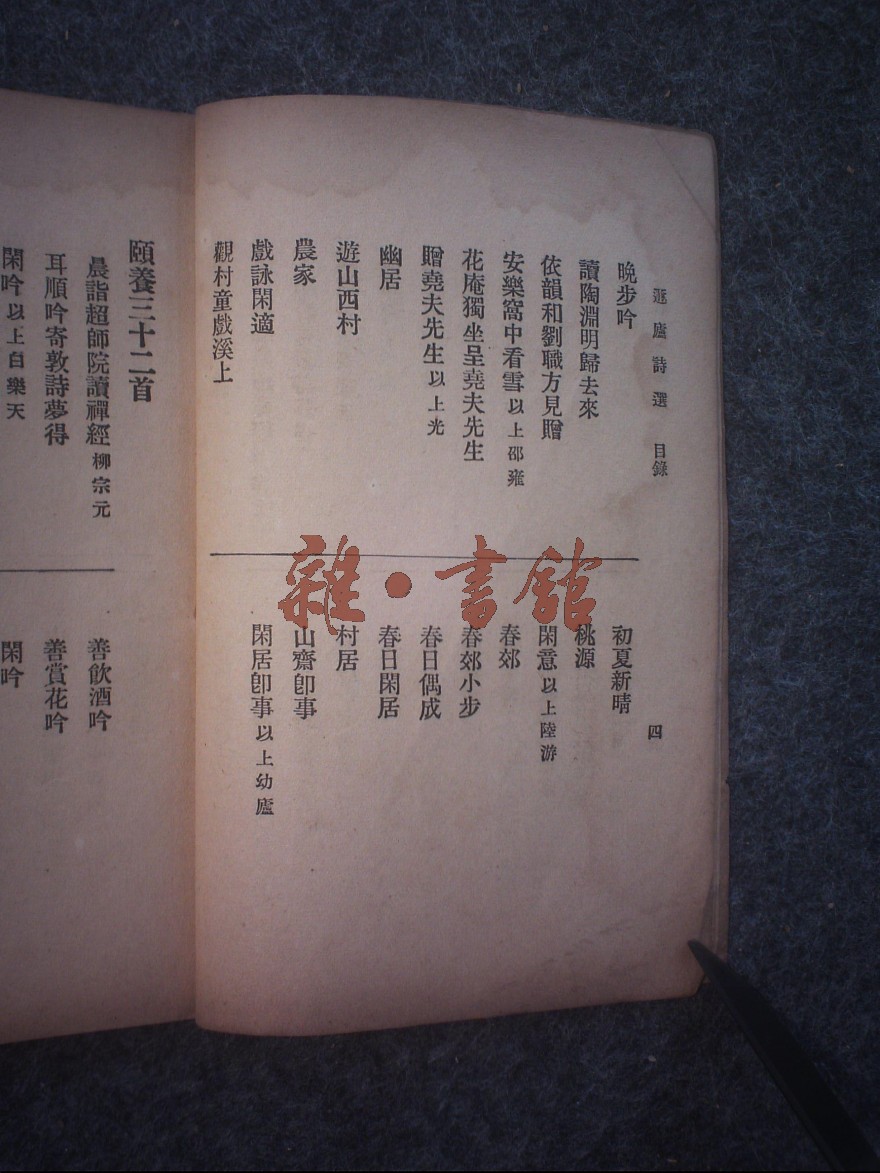 遯廬詩選 目錄
四
晚步吟
讀陶淵明歸去來
依韻和劉職方見贈
安樂窩中看雪 以上邵雍
花庵獨坐呈堯夫先生
贈堯夫先生 以上光
幽居
遊山西村
農家
戲詠閑適
觀村童戲溪上
初夏新晴
桃源
閑意 以上陸游
春郊
春郊小步
春日偶成
春日閑居
村居
山齋卽事
閑居卽事 以上幼廬
頤養三十二首
晨詣超師院讀禪經 柳宗元
耳順吟寄敦詩夢得
閑吟 以上白樂天
善飲酒吟
善賞花吟
閑吟
雜·書館